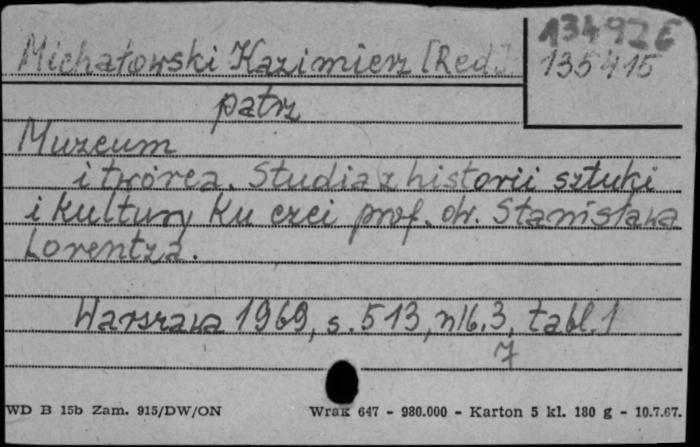 Michałowski Kazimierz [Red.]
134926
135415
patrz
Muzeum
i twórca. Studia z historii sztuki
i kultury ku czci prof. dr. Stanisława
Lorentza.
Warszawa 1969, s. 513, nlb. 3, tabl. 1
7
WD B 15b Zam. 915/DW/ON
Wrak 647 - 980.000 - Karton 5 kl. 180 g - 10.7.67.